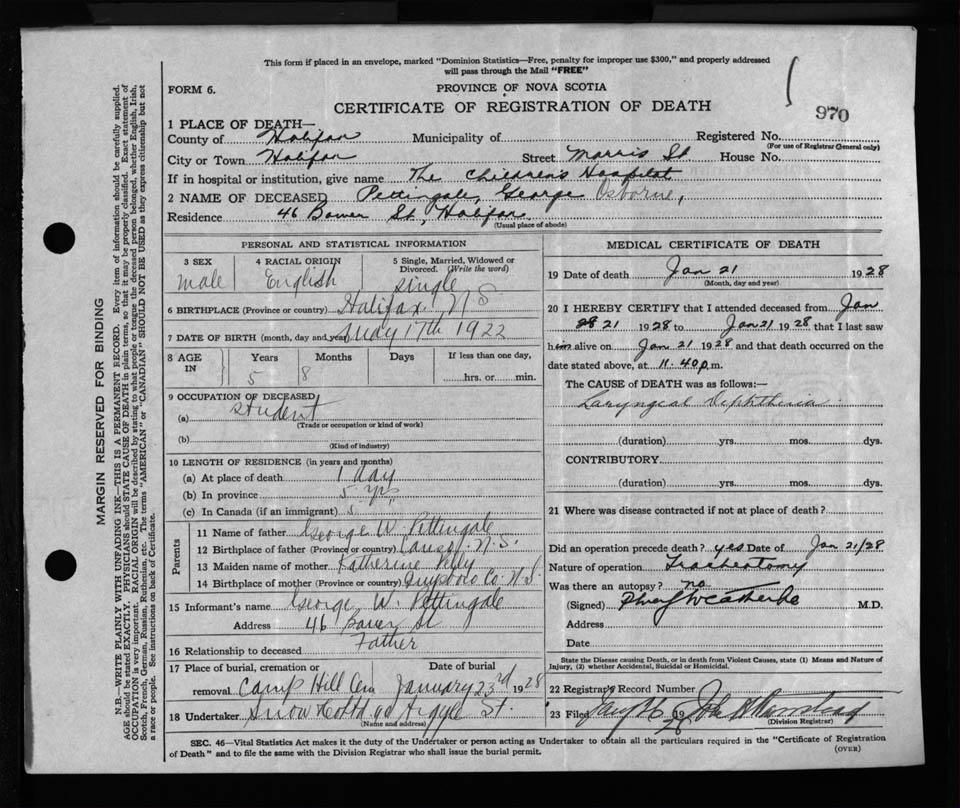 This form if placed in an envelope, marked "Dominion Statistics—Free, penalty for improper use $300," and properly addressed
will pass through the Mail "FREE"
FORM 6.
PROVINCE OF NOVA SCOTIA
970
CERTIFICATE OF REGISTRATION OF DEATH
1 PLACE OF DEATH—
County of Halifax Municipality of Registered No.
(For use of Registrar General only)
City or Town Halifax Street Morris St House No.
If in hospital or institution, give name The Children's Hospital
2 NAME OF DECEASED Pettingale, George Osborne,
Residence 46 Bower St, Halifax
(Usual place of abode)
PERSONAL AND STATISTICAL INFORMATION
3 SEX 4 RACIAL ORIGIN 5 Single, Married, Widowed or
Divorced. (Write the word)
male English single
6 BIRTHPLACE (Province or country) Halifax N S
7 DATE OF BIRTH (month, day and year) 17th 1922
8 AGE IN Years Months Days If less than one day,
5 8 hrs. or min.
9 OCCUPATION OF DECEASED
(a) student
(Trade or occupation or kind of work)
(b)
(Kind of industry)
10 LENGTH OF RESIDENCE (in years and months)
(a) At place of death 1 day
(b) In province 5 yrs
(c) In Canada (if an immigrant)
Parents
11 Name of father George W. Pettingale
12 Birthplace of father (Province or country) Canso N.S.
13 Maiden name of mother Katherine
14 Birthplace of mother (Province or country) Guysboro Co N.S
15 Informant's name George W. Pettingale
Address 46 Bower St
16 Relationship to deceased Father
17 Place of burial, cremation or Date of burial
removal Camp Hill Cem January 23rd 1928
18 Undertaker Snow & Co Ltd 90 Argyle St.
(Name and address)
MEDICAL CERTIFICATE OF DEATH
19 Date of death Jan 21 1928
(Month, day and year)
20 I HEREBY CERTIFY that I attended deceased from Jan
21 1928 to Jan 21 1928 that I last saw
him alive on Jan 21 1928 and that death occurred on the
date stated above, at 11.40 p.m.
The CAUSE OF DEATH was as follows:—
Laryngeal Diphtheria
(duration) yrs. mos. dys.
CONTRIBUTORY
(duration) yrs. mos. dys.
21 Where was disease contracted if not at place of death?
Did an operation precede death? yes Date of Jan 21/28
Nature of operation Tracheotomy
Was there an autopsy? no
(Signed) M.D.
Address
Date
State the Disease causing Death, or in death from Violent Causes, state (1) Means and Nature of
Injury, (2) whether Accidental, Suicidal or Homicidal.
22 Registrar's Record Number
23 Filed 19 28
(Division Registrar)
SEC. 46—Vital Statistics Act makes it the duty of the Undertaker or person acting as Undertaker to obtain all the particulars required in the "Certificate of Registration
of Death" and to file the same with the Division Registrar who shall issue the burial permit.
(OVER)
MARGIN RESERVED FOR BINDING
N.B.—WRITE PLAINLY WITH UNFADING INK—THIS IS A PERMANENT RECORD. Every item of information should be carefully supplied.
AGE should be stated EXACTLY. PHYSICIANS should STATE CAUSE OF DEATH in plain terms, so that it may be properly classified. Exact statement of
OCCUPATION is very important. RACIAL ORIGIN will be described by stating to what people or tongue the deceased person belonged, whether English, Irish,
Scotch, French, German, Russian, Ruthenian, etc. The terms "AMERICAN" or "CANADIAN" SHOULD NOT BE USED as they express citizenship but not
a race or people. See instructions on back of Certificate.